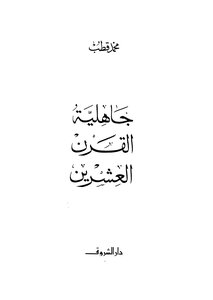 محمد قطب
جَاهِليَّة
القَرن
العِشرين
دار الشروق